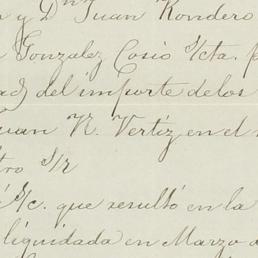 y Dn Juan Rondero
Gonzalez Cosio Icta. p
ad del importe de los
uan N. Vertiz en el
tro
que resultó en la
liquidada en Marzo